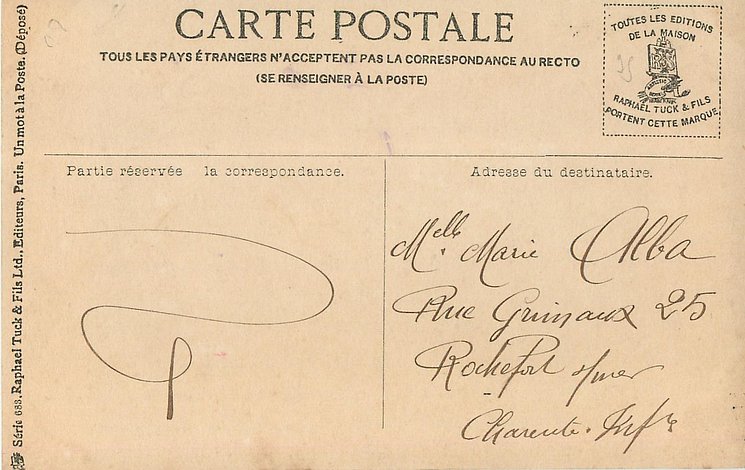 CARTE POSTALE
TOUS LES PAYS ÉTRANGERS N'ACCEPTENT PAS LA CORRESPONDANCE AU RECTO
(SE RENSEIGNER À LA POSTE)
TOUTES LES EDITIONS
DE LA MAISON
RAPHAEL TUCK & FILS
PORTENT CETTE MARQUE
Partie réservée la correspondance.
Adresse du destinataire.
Melle. Marie Alba
Rue Grimaux 25
Rochefort s/mer
Charente-Infre
Série 683. Raphael Tuck & Fils Ltd., Editeurs, Paris. Un mot à la Poste. (Déposé)